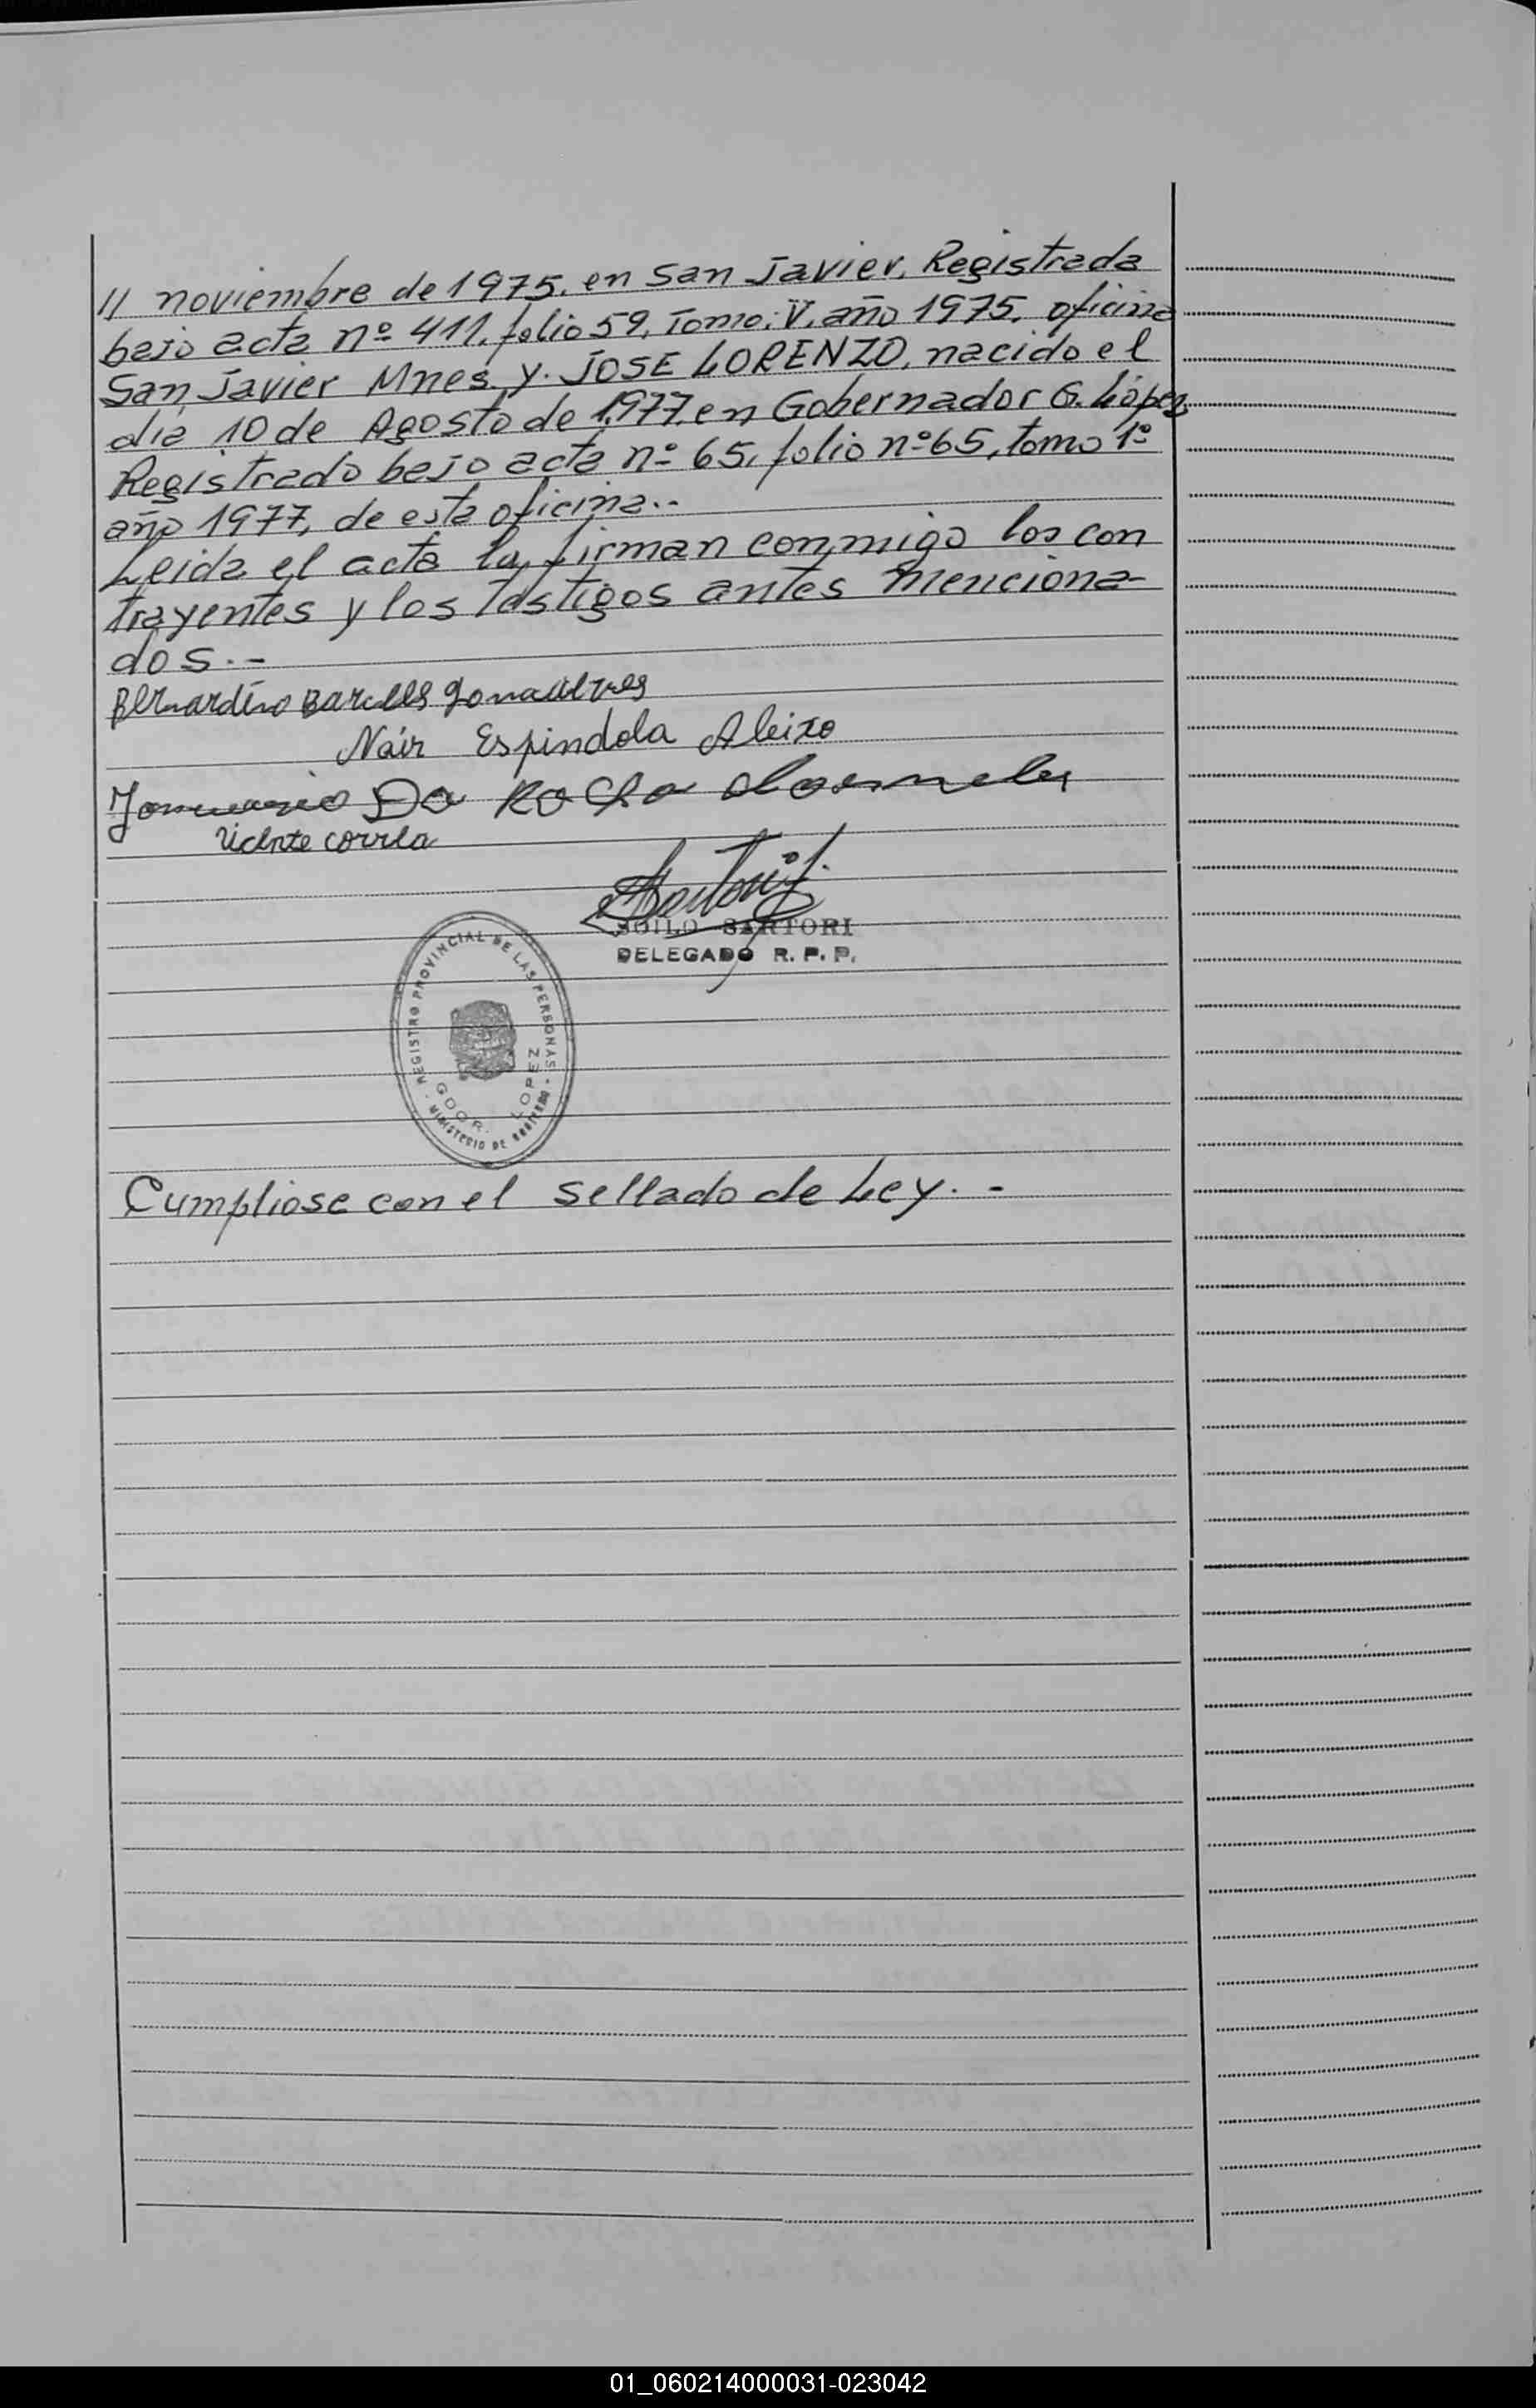 // noviembre de 1975, en San Javier, Registrada
bajo acta nº 411, folio 59, Tomo: V, año 1975, oficina
San Javier Mnes. y. JOSE LORENZO, nacido el
día 10 de Agosto de 1977, en Gobernador G. López
Registrado bajo acta nº 65, folio nº 65, tomo 1º
año 1977, de esta oficina..-
Leida el acta la firman conmigo los con
trayentes y los testigos antes menciona-
dos.-
Bernardino Barcelos Goncalves
Náir Espindola Aleixo
Da Rocha
Vicente Correa
ZOILO SARTORI
DELEGADO R. P. P.
REGISTRO PROVINCIAL DE LAS PERSONAS
GDOR. LOPEZ
- MINISTERIO DE GOBIERNO -
Cumpliose con el sellado de Ley. -
01_060214000031-023042